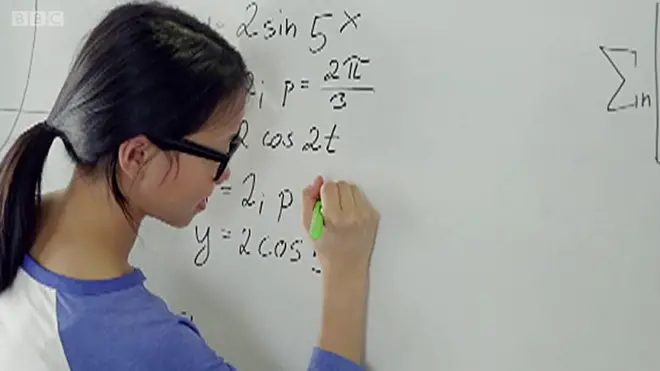 BBC
= 2 sin 5x
2; p = 2π/3
2 cos 2t
= 2; p
y = 2 cos
Σm